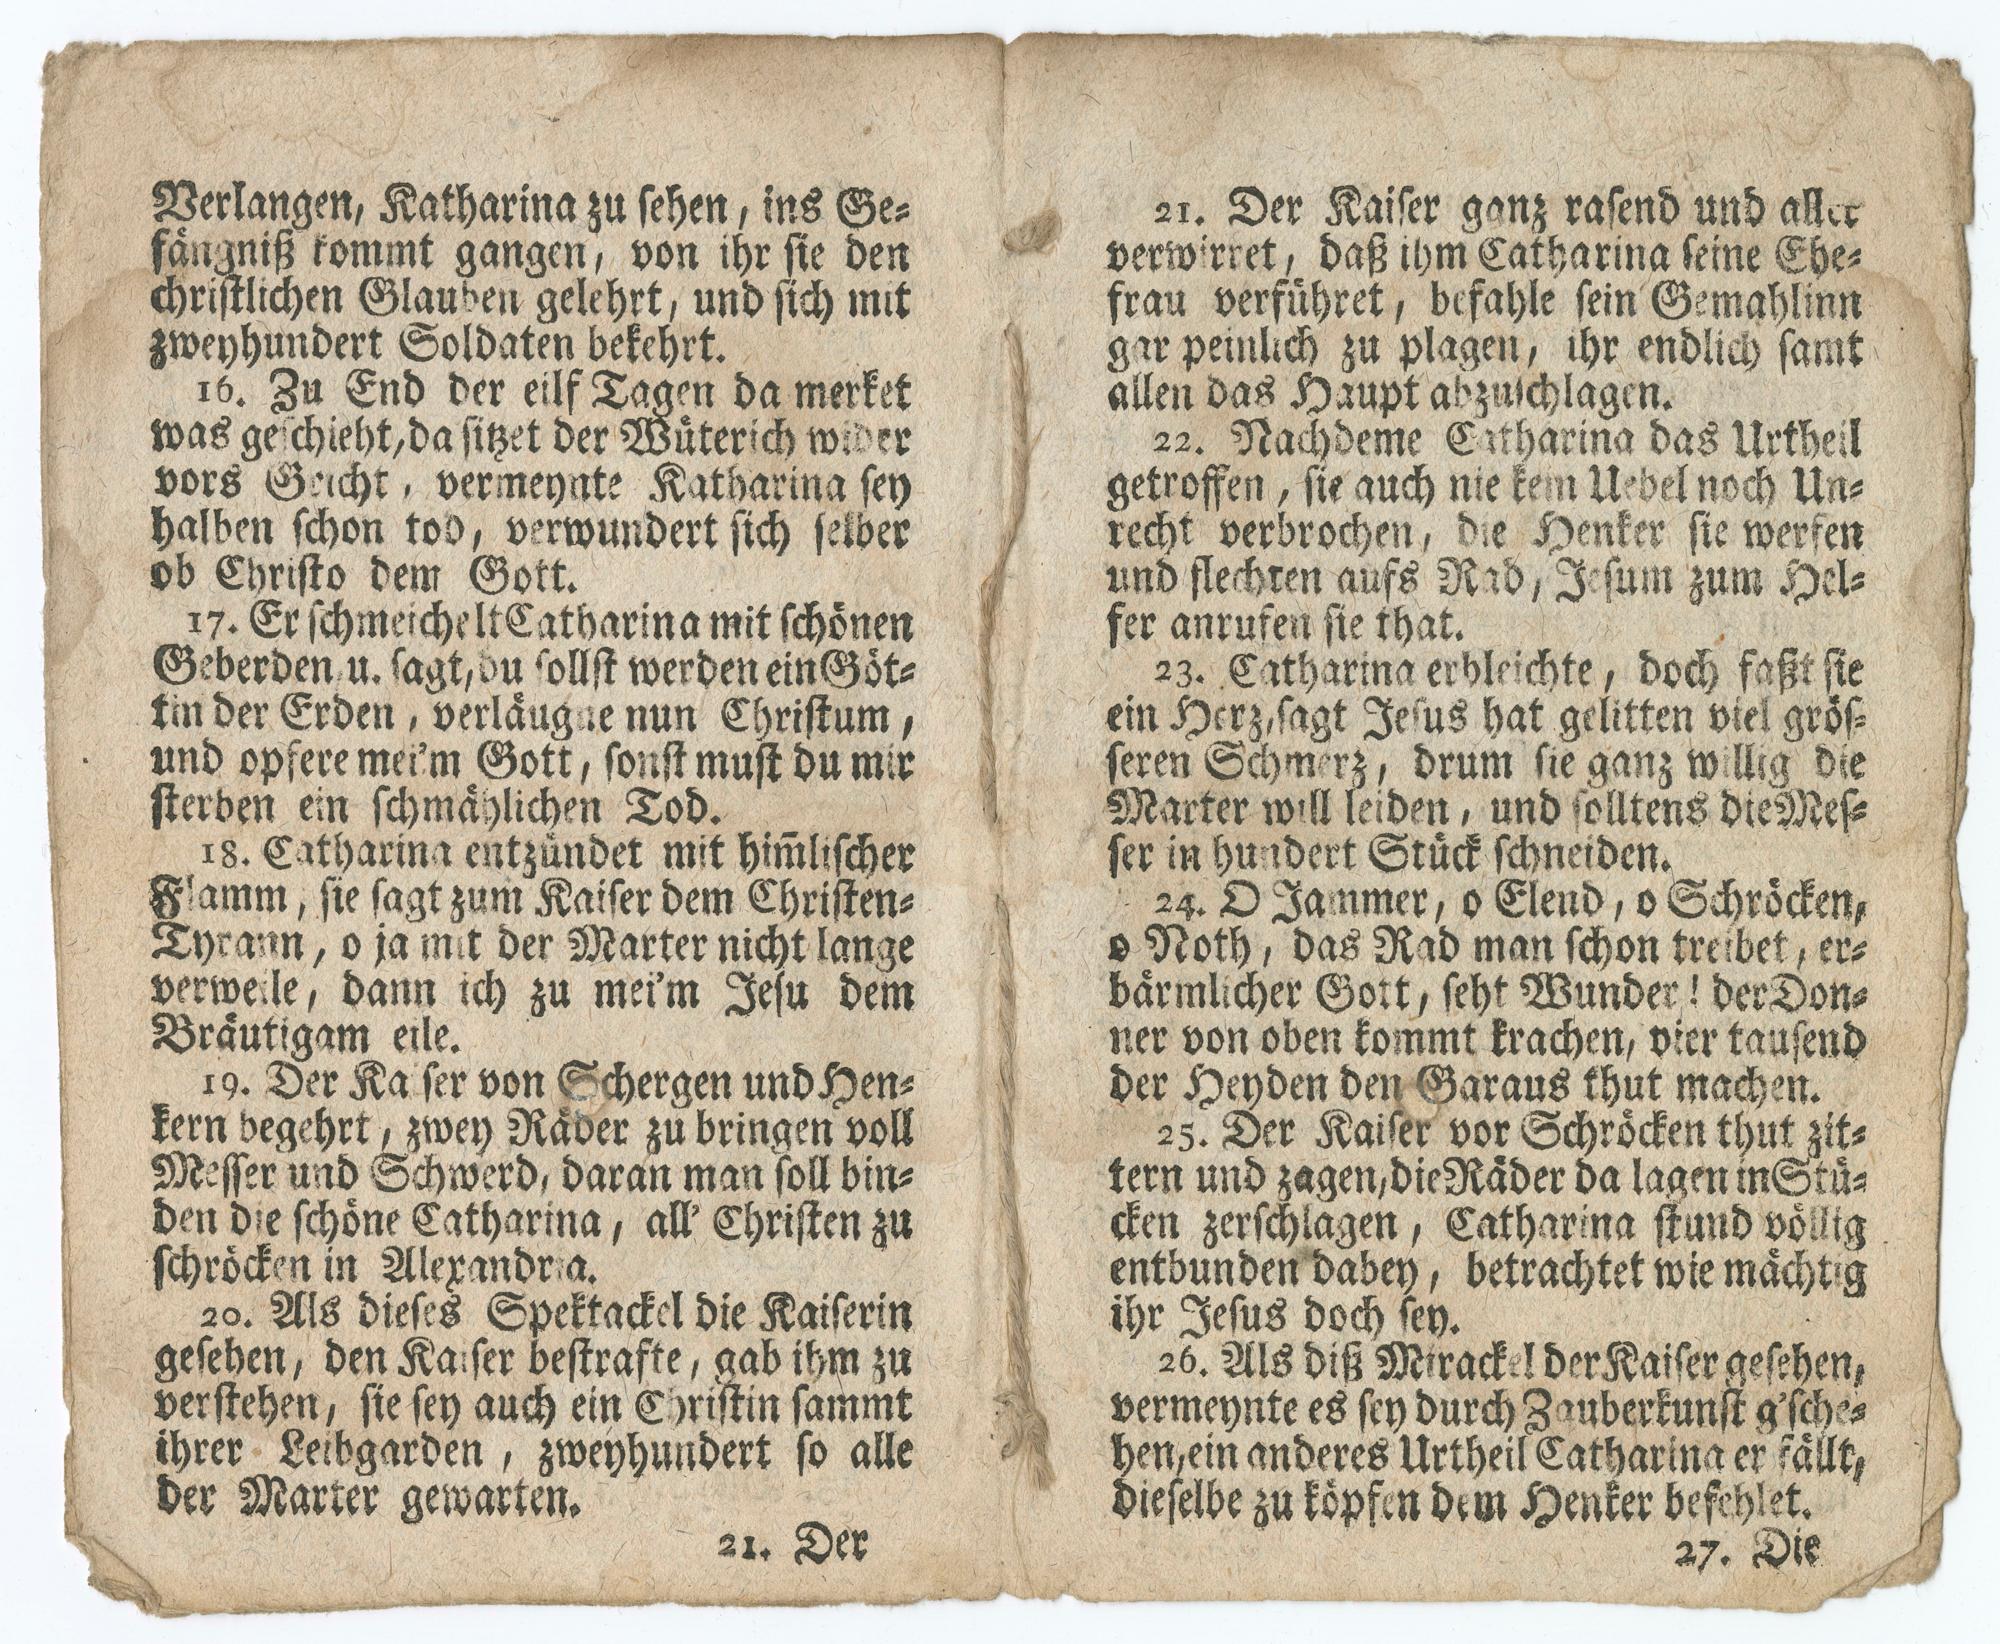 Verlangen, Katharina zu sehen, ins Ge-
fängniß kommt gangen, von ihr sie den
christlichen Glauben gelehrt, und sich mit
zweyhundert Soldaten bekehrt.
16. Zu End der eilf Tagen da merket
was geschieht, da sitzet der Wüterich wider
vors Gricht, vermeynte Katharina sey
halben schon tod, verwundert sich selber
ob Christo dem Gott.
17. Er schmeichelt Catharina mit schönen
Geberden, u. sagt, du sollst werden ein Göt-
tin der Erden, verläugne nun Christum,
und opfere mei'm Gott, sonst must du mir
sterben ein schmählichen Tod.
18. Catharina entzündet mit him̄lischer
Flamm, sie sagt zum Kaiser dem Christen-
Tyrann, o ja mit der Marter nicht lange
verweile, dann ich zu mei'm Jesu dem
Bräutigam eile.
19. Der Kaiser von Schergen und Hen-
kern begehrt, zwey Räder zu bringen voll
Messer und Schwerd, daran man soll bin-
den die schöne Catharina, all' Christen zu
schröcken in Alexandria.
20. Als dieses Spektackel die Kaiserin
gesehen, den Kaiser bestrafte, gab ihm zu
verstehen, sie sey auch ein Christin sammt
ihrer Leibgarden, zweyhundert so alle
der Marter gewarten.
21. Der
21. Der Kaiser ganz rasend und aller
verwirret, daß ihm Catharina seine Ehe-
frau verführet, befahle sein Gemahlinn
gar peinlich zu plagen, ihr endlich samt
allen das Haupt abzuschlagen.
22. Nachdeme Catharina das Urtheil
getroffen, sie auch nie kein Uebel noch Un-
recht verbrochen, die Henker sie werfen
und flechten aufs Rad, Jesum zum Hel-
fer anrufen sie that.
23. Catharina erbleichte, doch faßt sie
ein Herz, sagt Jesus hat gelitten viel grös-
seren Schmerz, drum sie ganz willig die
Marter will leiden, und solltens die Mes-
ser in hundert Stück schneiden.
24. O Jammer, o Elend, o Schröcken,
o Noth, das Rad man schon treibet, er-
bärmlicher Gott, seht Wunder! der Don-
ner von oben kommt krachen, vier tausend
der Heyden den Garaus thut machen.
25. Der Kaiser vor Schröcken thut zit-
tern und zagen, die Räder da lagen in Stü-
cken zerschlagen, Catharina stund völlig
entbunden dabey, betrachtet wie mächtig
ihr Jesus doch sey.
26. Als diß Mirackel der Kaiser gesehen,
vermeynte es sey durch Zauberkunst g'sche-
hen, ein anderes Urtheil Catharina er fällt,
dieselbe zu köpfen dem Henker befehlet.
27. Die